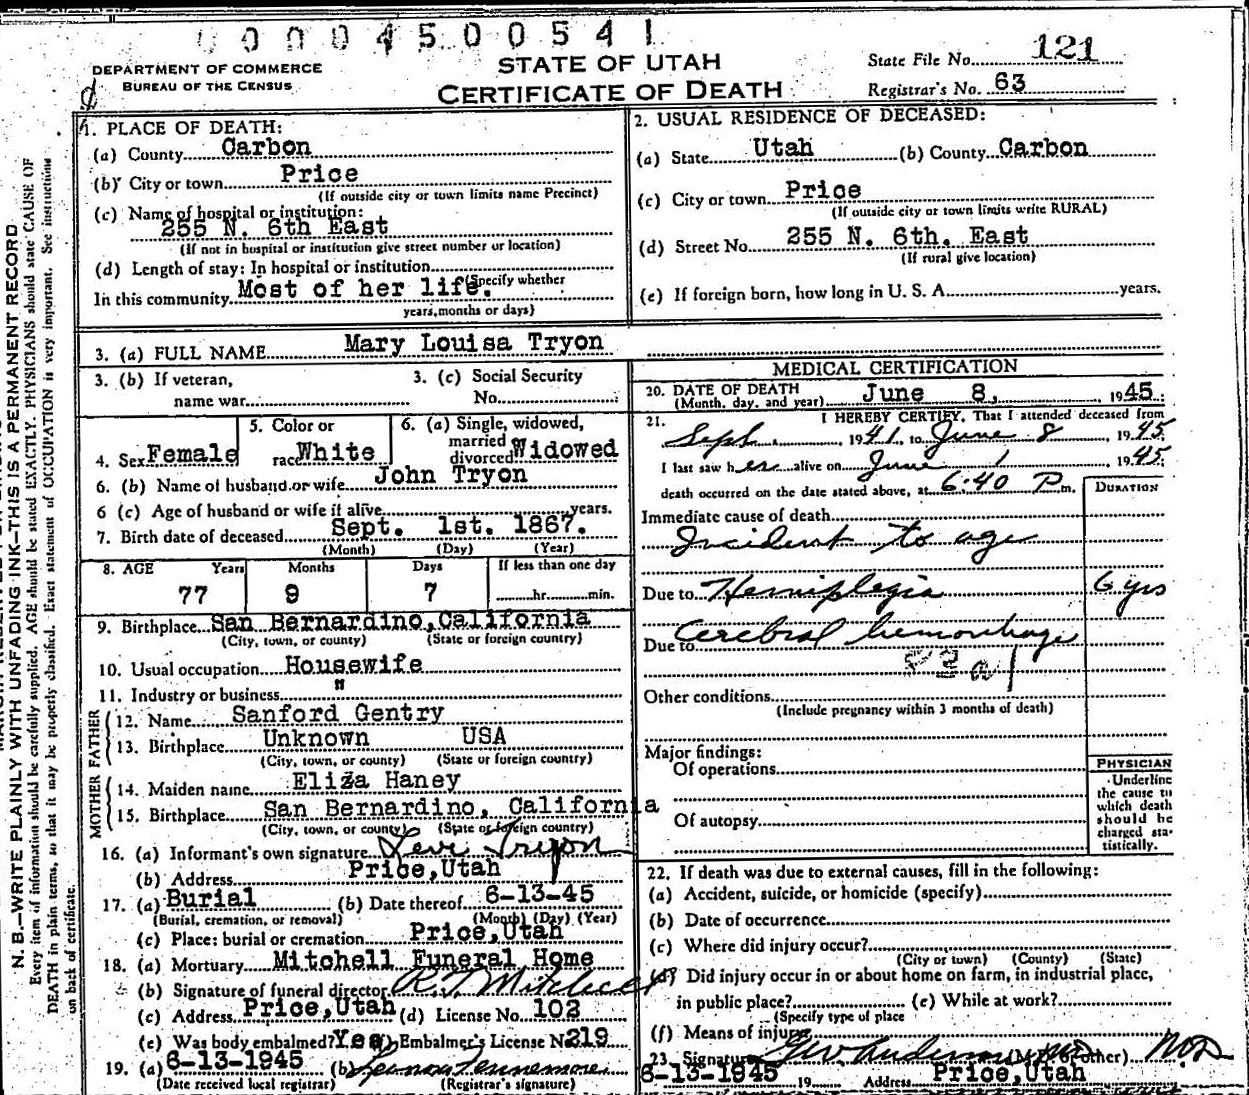 0 0 0 4 5 0 0 5 4 1
DEPARTMENT OF COMMERCE
BUREAU OF THE CENSUS
STATE OF UTAH
CERTIFICATE OF DEATH
State File No. 121
Registrar's No. 63
N. B.—WRITE PLAINLY WITH UNFADING INK—THIS IS A PERMANENT RECORD
Every item of information should be carefully supplied. AGE should be stated EXACTLY. PHYSICIANS should state CAUSE OF
DEATH in plain terms, so that it may be properly classified. Exact statement of OCCUPATION is very important. See instructions
on back of certificate.
1. PLACE OF DEATH:
(a) County Carbon
(b) City or town Price
(If outside city or town limits name Precinct)
(c) Name of hospital or institution:
255 N. 6th East
(If not in hospital or institution give street number or location)
(d) Length of stay: In hospital or institution
(Specify whether
In this community Most of her life.
years, months or days)
2. USUAL RESIDENCE OF DECEASED:
(a) State Utah (b) County Carbon
(c) City or town Price
(If outside city or town limits write RURAL)
(d) Street No. 255 N. 6th. East
(If rural give location)
(e) If foreign born, how long in U. S. A. years.
3. (a) FULL NAME Mary Louisa Tryon
3. (b) If veteran,
name war
3. (c) Social Security
No.
4. Sex Female
5. Color or
race White
6. (a) Single, widowed,
married
divorced Widowed
6. (b) Name of husband or wife John Tryon
6 (c) Age of husband or wife if alive years.
7. Birth date of deceased Sept. 1st. 1867.
(Month) (Day) (Year)
8. AGE Years Months Days If less than one day
77 9 7 hr. min.
9. Birthplace San Bernardino, California
(City, town, or county) (State or foreign country)
10. Usual occupation Housewife
11. Industry or business "
FATHER
12. Name Sanford Gentry
13. Birthplace Unknown USA
(City, town, or county) (State or foreign country)
MOTHER
14. Maiden name Eliza Haney
15. Birthplace San Bernardino, California
(City, town, or county) (State or foreign country)
16. (a) Informant's own signature Levi Tryon
(b) Address Price, Utah
17. (a) Burial (b) Date thereof 6-13-45
(Burial, cremation, or removal) (Month) (Day) (Year)
(c) Place: burial or cremation Price, Utah
18. (a) Mortuary Mitchell Funeral Home
(b) Signature of funeral director R. T. Mitchell
(c) Address Price, Utah (d) License No. 102
(e) Was body embalmed? Yes (f) Embalmer's License No. 219
19. (a) 6-13-1945 (b)
(Date received local registrar) (Registrar's signature)
MEDICAL CERTIFICATION
20. DATE OF DEATH June 8, 1945
(Month, day, and year)
21. I HEREBY CERTIFY, That I attended deceased from
Sept. , 1941, to June 8, 1945
I last saw her alive on June 1, 1945
death occurred on the date stated above, at 6:40 P m.
DURATION
Immediate cause of death
Incident to age
Due to Hemiplegia 6 yrs
Due to Cerebral hemorrhage
Other conditions
(Include pregnancy within 3 months of death)
Major findings:
Of operations
Of autopsy
PHYSICIAN
Underline
the cause to
which death
should be
charged sta-
tistically.
22. If death was due to external causes, fill in the following:
(a) Accident, suicide, or homicide (specify)
(b) Date of occurrence
(c) Where did injury occur?
(City or town) (County) (State)
(d) Did injury occur in or about home on farm, in industrial place,
in public place? (e) While at work?
(Specify type of place
(f) Means of injury
23. Signature (M. D. or other) M.D.
6-13-1945 19 Address Price, Utah